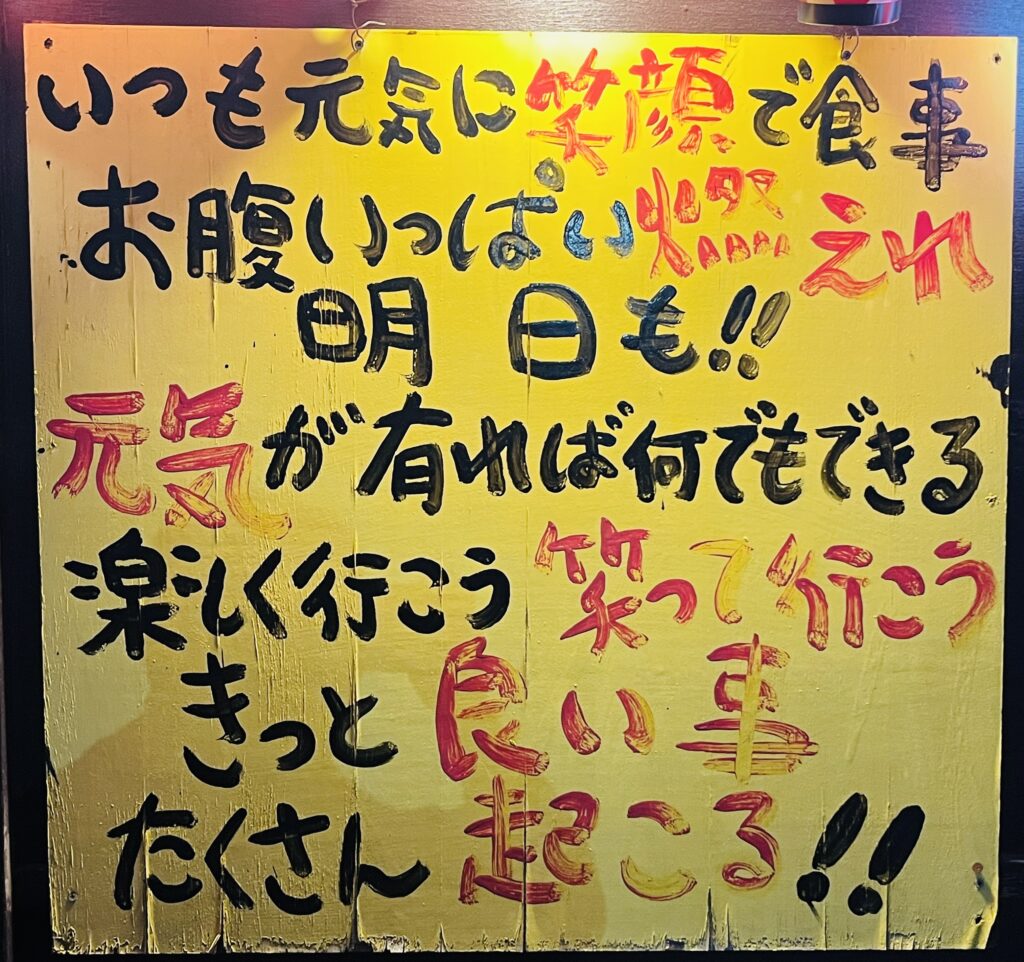 いつも元気に笑顔で食事
お腹いっぱい燃えれ
明日も!!
元気が有れば何でもできる
楽しく行こう 笑って行こう
きっと良い事
たくさん起こる!!